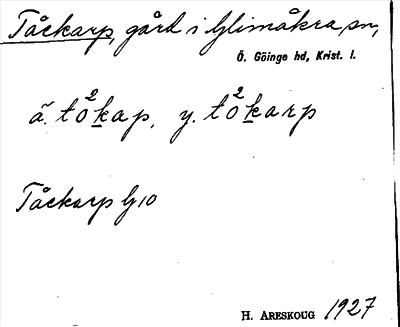 Tåckarp, gård i Glimåkra sn,
Ö. Göinge hd, Krist. l.
ä. tò²kap, y. tò²karp
Tåckarp G 10
H. Areskoug 1927